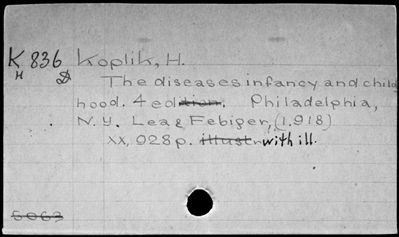 K 836 Koplik, H.
H
The diseases infancy and child
hood. 4 edition. Philadelphia,
N.Y. Lea & Febiger, (1.918)
XX, 928 p. illustr. with ill.
5063